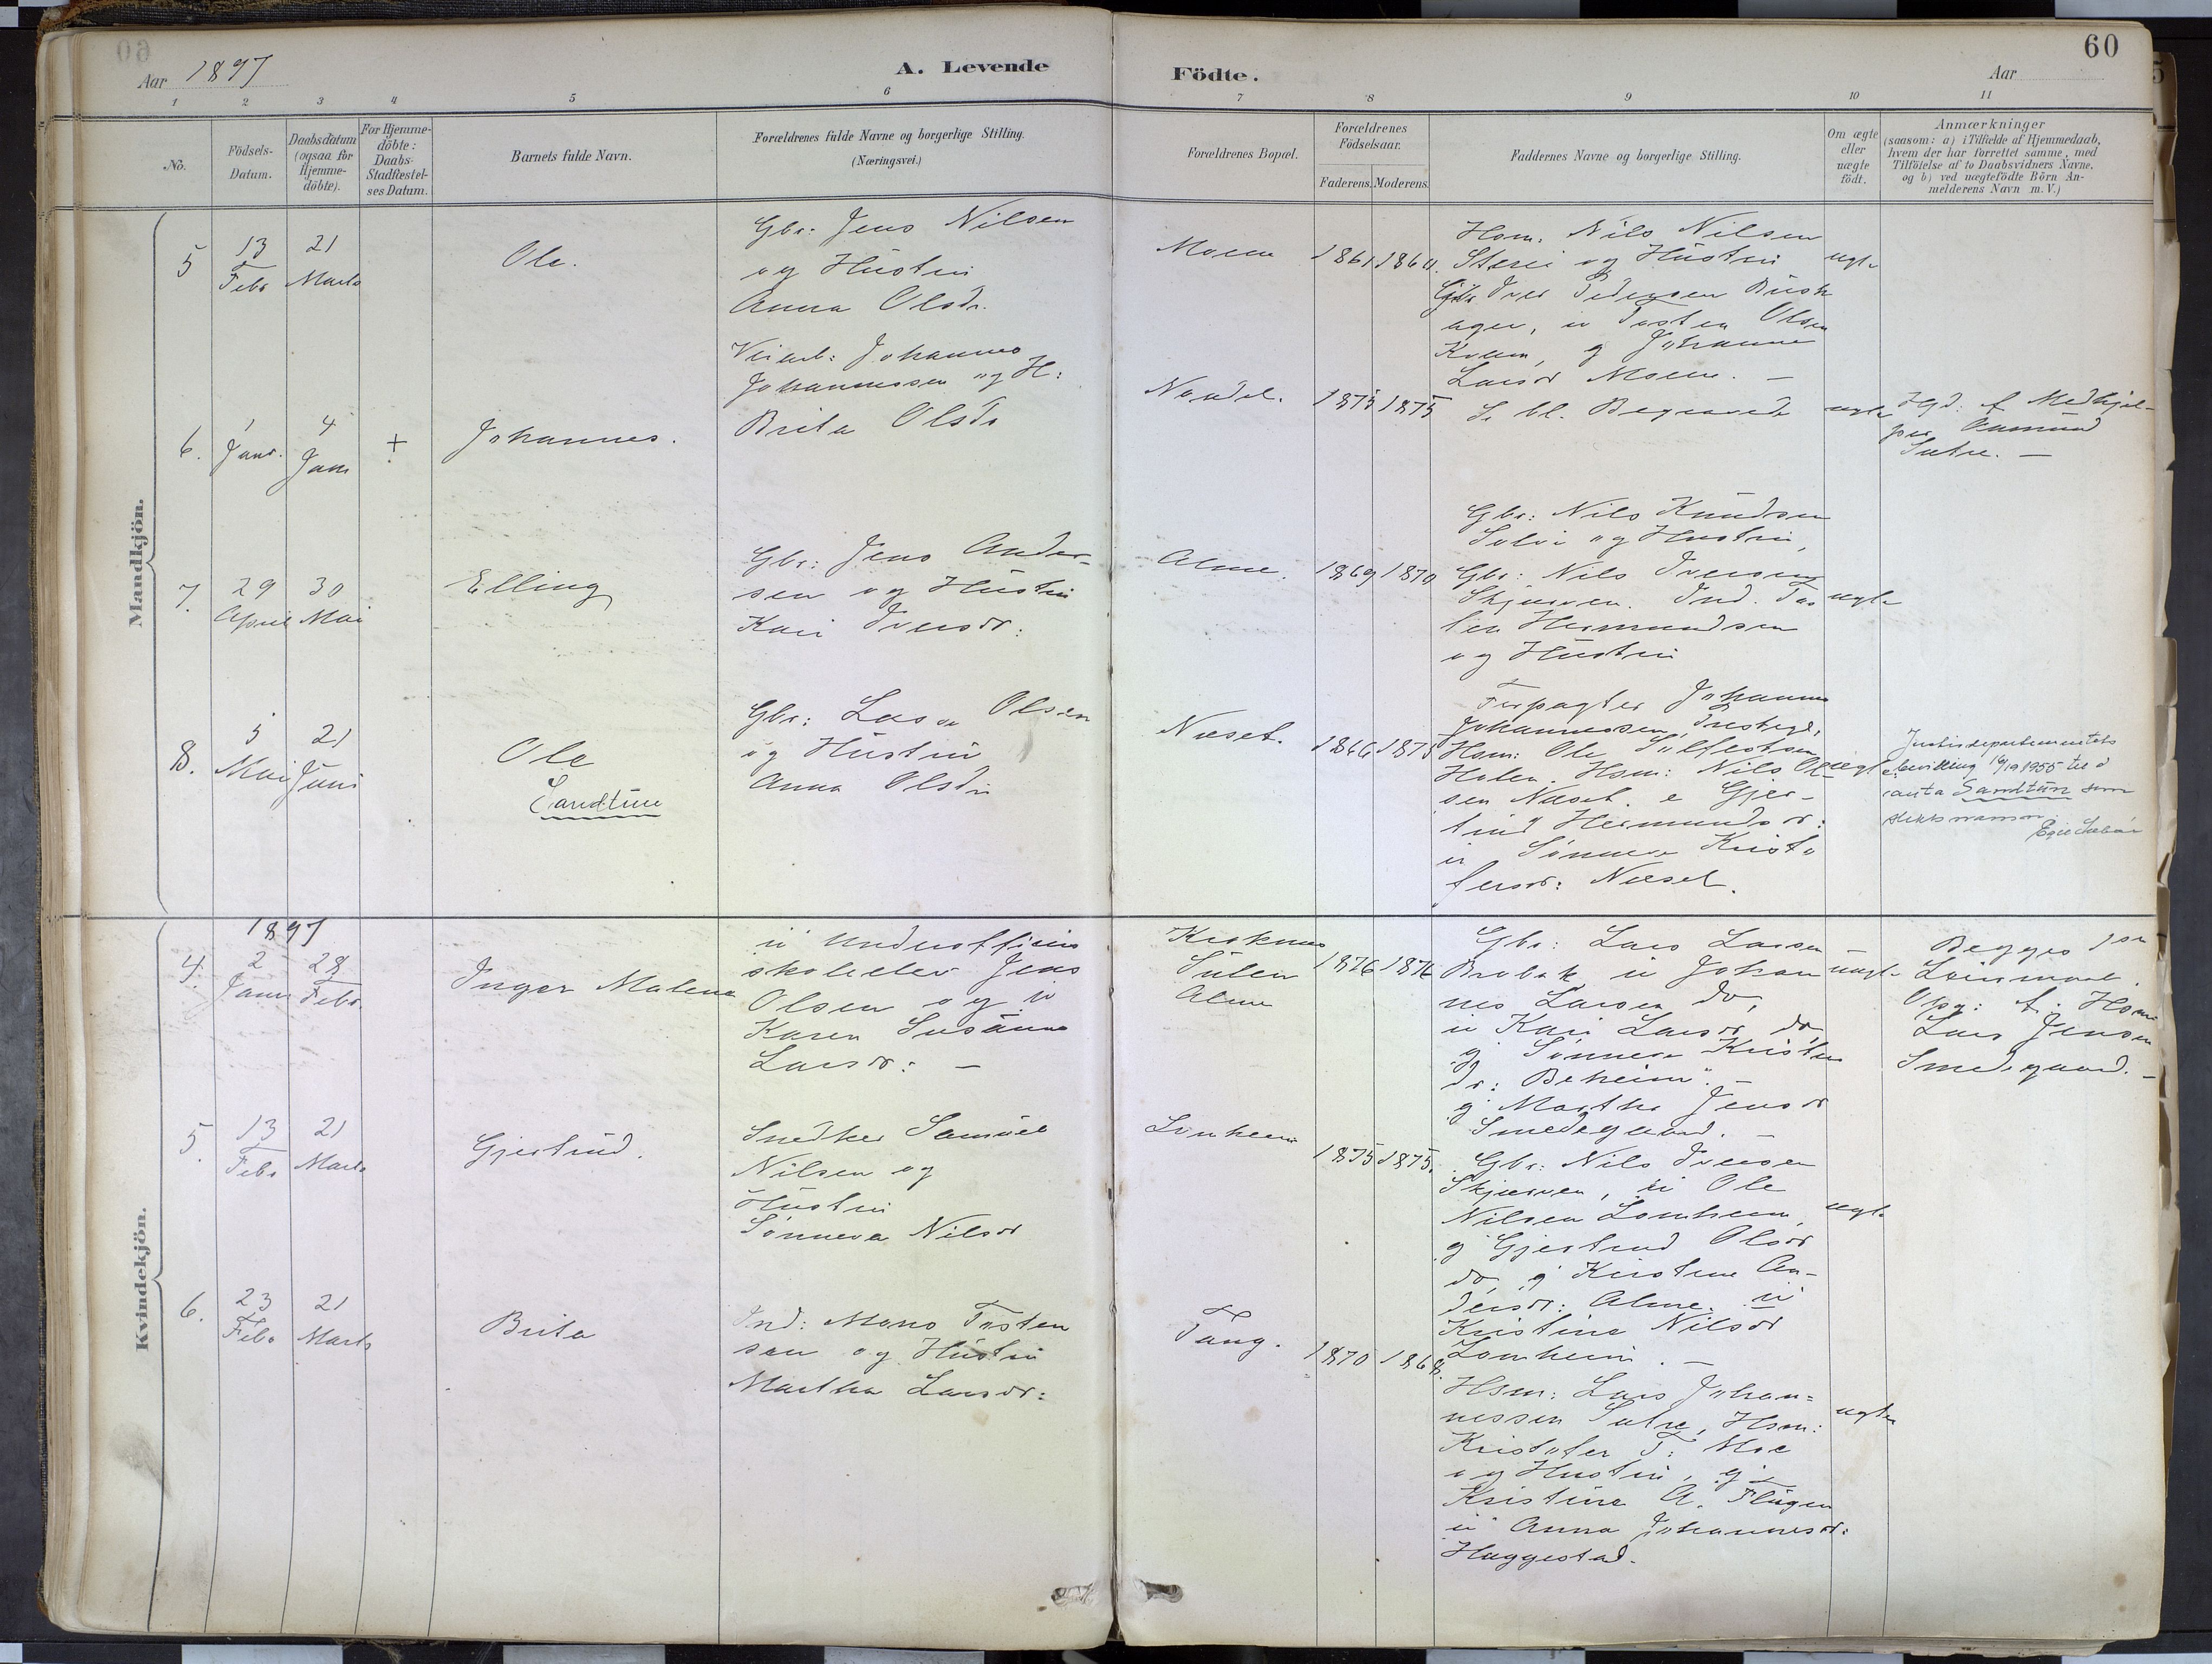 60
Aar 1897
A. Levende
Födte.
Aar
1 2 3 4 5 6 7 8 9 10 11
No.
Födsels-
Datum.
Daabsdatum
(ogsaa for
Hjemme-
döbte).
For Hjemme-
döbte:
Daabs-
Stadfæstel-
ses Datum.
Barnets fulde Navn.
Forældrenes fulde Navne og borgerlige Stilling.
(Næringsvei.)
Forældrenes Bopæl.
Forældrenes
Födselsaar.
Faderens. Moderens.
Faddernes Navne og borgerlige Stilling.
Om ægte
eller
uægte
födt.
Anmærkninger
(saasom: a) i Tilfælde af Hjemmedaab,
hvem der har forrettet samme, med
Tilföielse af to Daabsvidners Navne,
og b) ved uægtefödte Börn An-
melderens Navn m.V.)
Mandkjön.
5
13
Febr
21
Marts
Ole.
Gbr: Jens Nilsen
og Hustru
Anna Olsdr.
Moene
1861 1864.
Hsm. Nils Nilsen
og Hustru
Gbr Iver Pedersen
ager, u Tosten Olsen
Kvam, g Johanne
Larsdr Moene. —
ægte
6.
1
Janr.
4
Janr
+
Johannes.
Johannes
Johannessen og H:
Brita Olsdr
Nondal.
1875 1875
S. bl. Begravede
ægte
Hjd: f Medhjel-
per Aamund
Sætre. —
7.
29
April
30
Mai
Elling
Gbr: Jens Ander-
sen og Hustru
Kari Iversdr:
Alme.
1869 1870
Gbr: Nils Knudsen
Solvi og Hustru,
Gbr: Nils Iversen
Skjerven. Ind. Tos
ten Hermundsen
og Hustru
ægte
8.
5
Mai
21
Juni
Ole
Sandtun
Gbr: Lasse Olsen
og Hustru
Anna Olsdr
Næset.
1866 1875
Forpagter Johannes
Johannessen,
Hsm: Ole
Holen. Hsm: Nils Ol-
sen Næset. e Gjer-
trud Hermundsdr:
u Sönneva Kristo
fersdr: Næset.
ægte
Justisdepartementets
bevilling 16/10 1955 til å
anta Sandtun som
slektsnamn
Kvindekjön.
1897
4.
2
Janr
28
Febr.
Inger Malene
u Underofficers
skoleelev Jens
Olsen og p
Karen Susanne
Larsdr: —
Kraknes
Sulen
Alme
1876 1876
Gbr: Lars Larsen —
Brobak u Johan
nes Larsen do,
u Kari Larsdr do
g Sönneva Kristen
dr: Beheim". —
g Martha Jensdr
Smedegaard. —
uægte
Begges 1ste
Leiermaal.
Opg: f. Hsm
Lars Jensen
Smedegaard. —
5.
13
Febr
21
Marts
Gjertrud.
Snedker Samuel
Nilsen og
Hustru
Sönneva Nilsdr
Lonheim
1875 1875.
Gbr: Nils Iversen
Skjerven, u Ole
Nilsen Lonheim,
g Gjertrud Olsdr
do, g Kirstine An-
dersdr: Alme. u
Kristine Nilsdr
Lonheim. —
ægte
6.
23
Febr
21
Marts
Brita
Ind: Mons Tosten
sen og Hustru
Martha Larsdr:
Tang.
1870 1868.
Hsm: Lars Johan=
nessen Sætre, Hsm:
Kristofer T: Moe
og Hustru, g
Kristine A. Flugen
u Anna Johannesdr:
Huggestad.
ægte